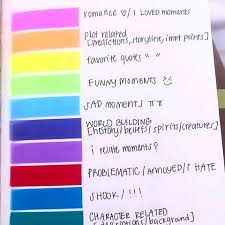 romance ♡/ I LOVED moments
plot related
[predictions, storyline, impt points]
favorite quotes " "
FUNNY MOMENTS ?
SAD MOMENTS ㅠㅠ
WORLD BUILDING
[history/beliefs/spirits/creatures]
i relate moments?
PROBLEMATIC/ANNOYED/I HATE
SHOOK/!!!
CHARACTER RELATED
[descriptions/background]